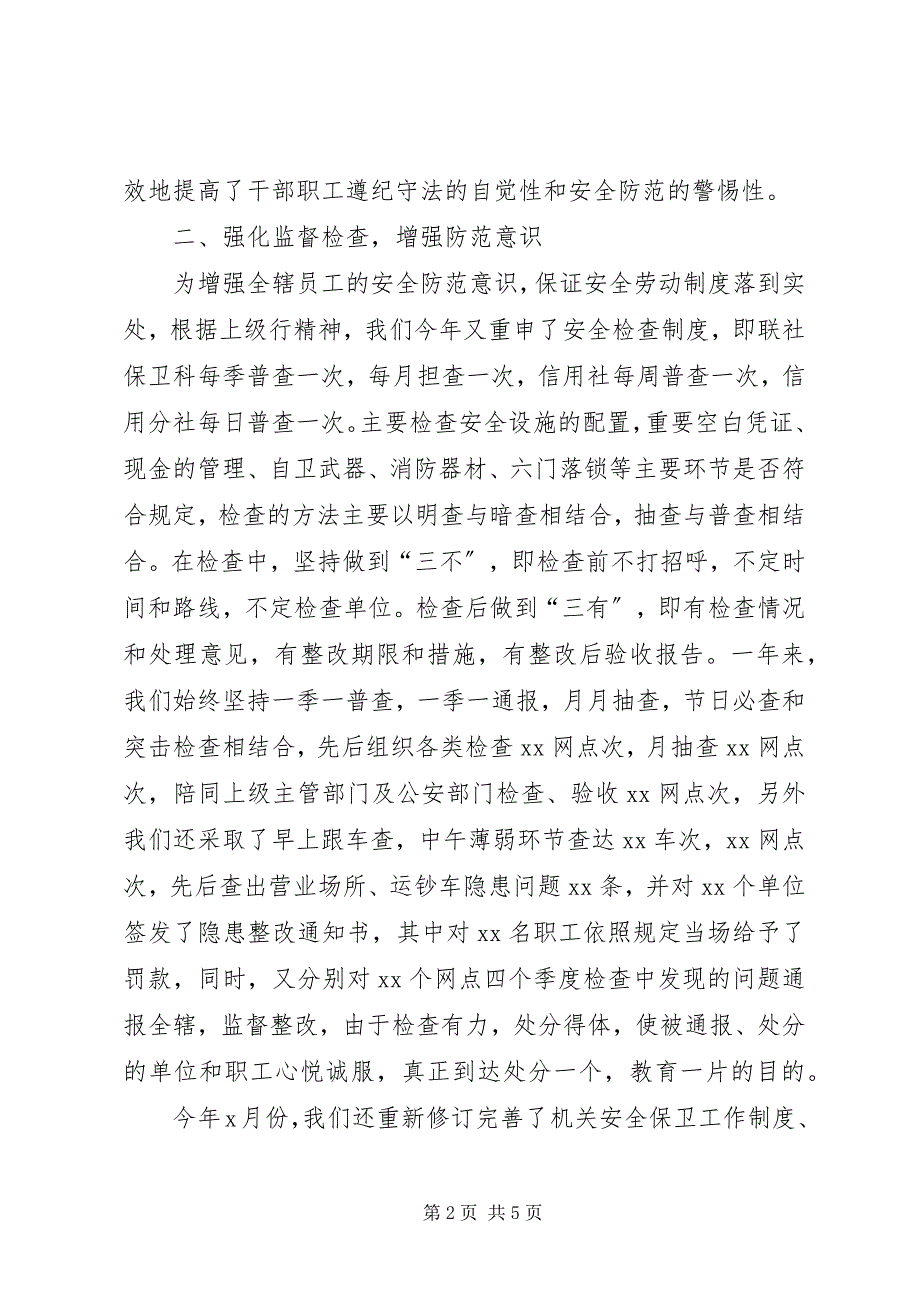 效地提高了干部职工遵纪守法的自觉性和安全防范的警惕性。
二、强化监督检查，增强防范意识
为增强全辖员工的安全防范意识，保证安全劳动制度落到实
处，根据上级行精神，我们今年又重申了安全检查制度，即联社
保卫科每季普查一次，每月担查一次，信用社每周普查一次，信
用分社每日普查一次。主要检查安全设施的配置，重要空白凭证、
现金的管理、自卫武器、消防器材、六门落锁等主要环节是否符
合规定，检查的方法主要以明查与暗查相结合，抽查与普查相结
合。在检查中，坚持做到“三不〞，即检查前不打招呼，不定时
间和路线，不定检查单位。检查后做到“三有〞，即有检查情况
和处理意见，有整改期限和措施，有整改后验收报告。一年来，
我们始终坚持一季一普查，一季一通报，月月抽查，节日必查和
突击检查相结合，先后组织各类检查 xx 网点次，月抽查 xx 网点
次，陪同上级主管部门及公安部门检查、验收 xx 网点次，另外
我们还采取了早上跟车查，中午薄弱环节查达 xx 车次，xx 网点
次，先后查出营业场所、运钞车隐患问题 xx 条，并对 xx 个单位
签发了隐患整改通知书，其中对 xx 名职工依照规定当场给予了
罚款，同时，又分别对 xx 个网点四个季度检查中发现的问题通
报全辖，监督整改，由于检查有力，处分得体，使被通报、处分
的单位和职工心悦诚服，真正到达处分一个，教育一片的目的。
今年 x 月份，我们还重新修订完善了机关安全保卫工作制度、
第 2 页 共 5 页